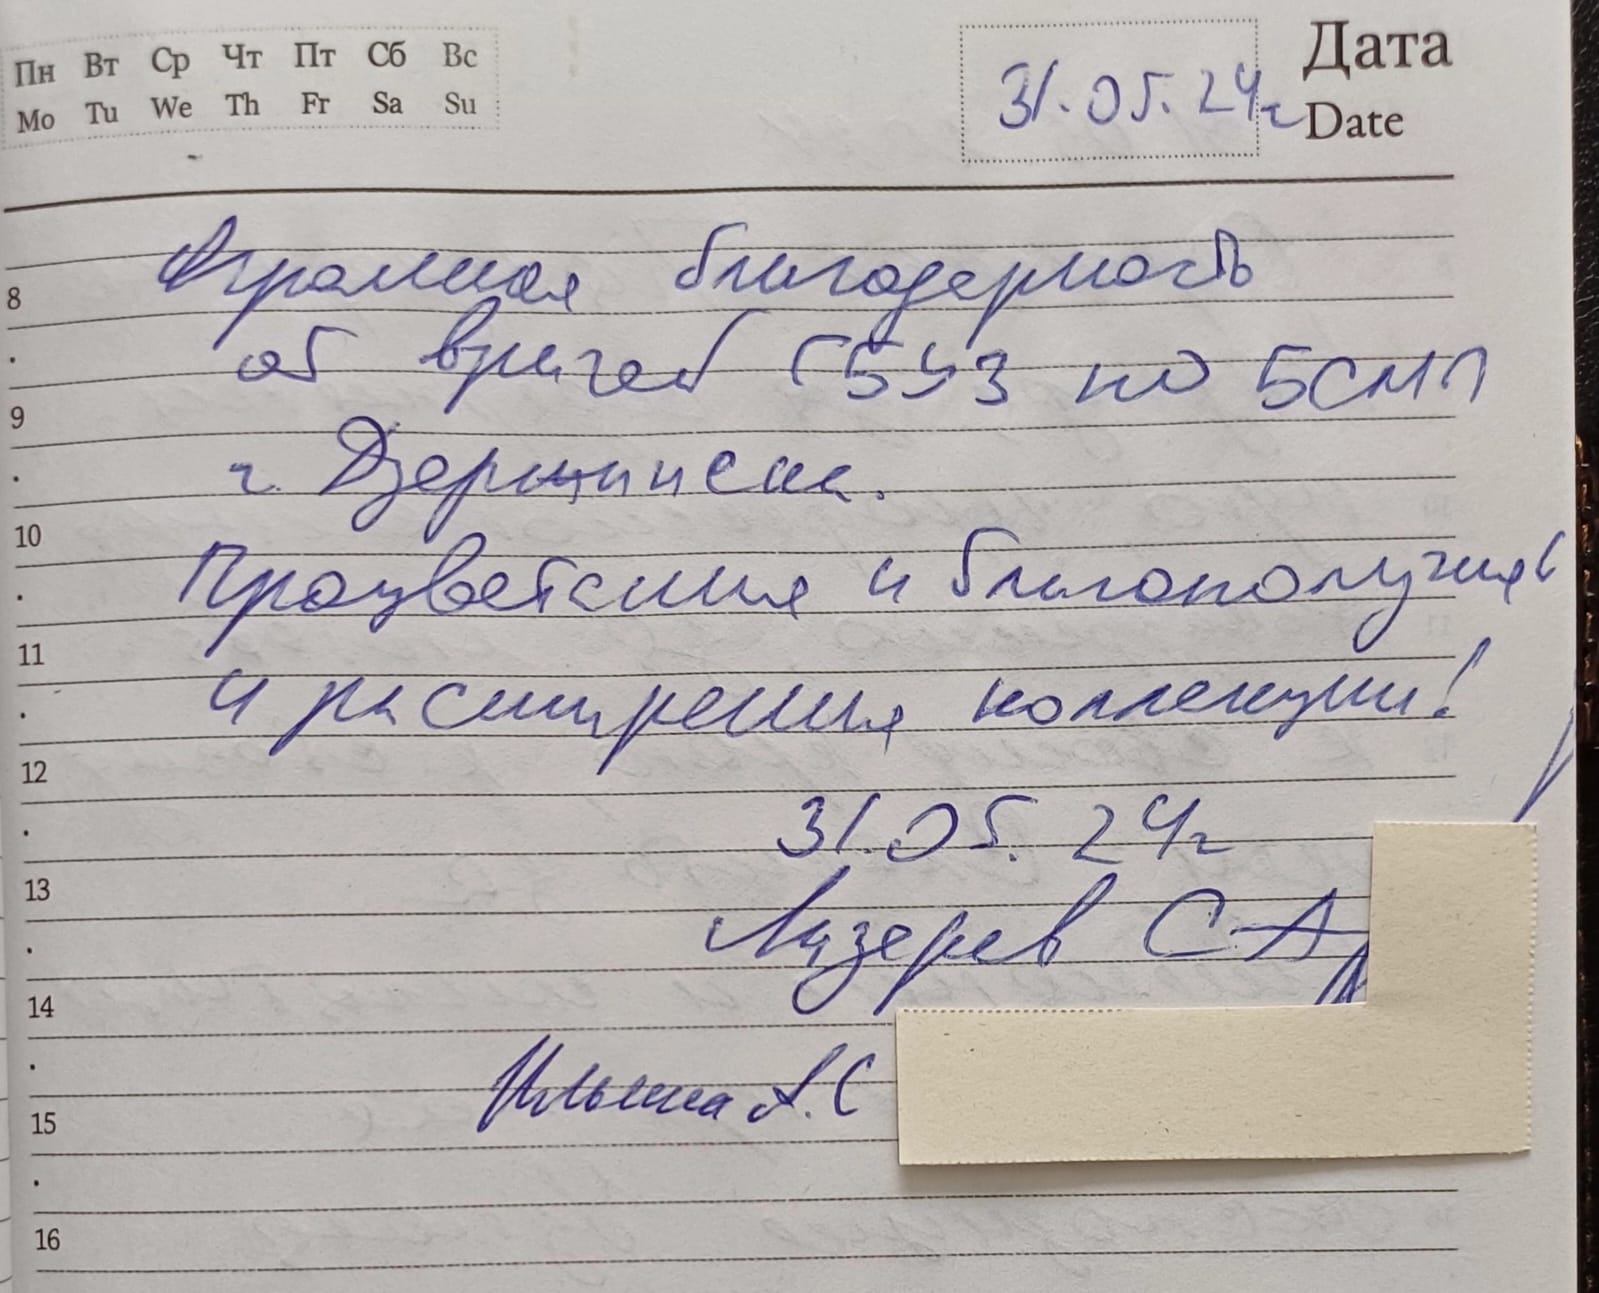 Пн Вт Ср Чт Пт Сб Вс
Mo Tu We Th Fr Sa Su
31.05.24г
Дата
Date
Огромная благодарность
от врачей ГБУЗ НО БСМП
г. Дзержинска.
Процветания и благополучия
и расширения коллекции!
31.05.24г
Лазерев С А
Ильина А.С
8
9
10
11
12
13
14
15
16